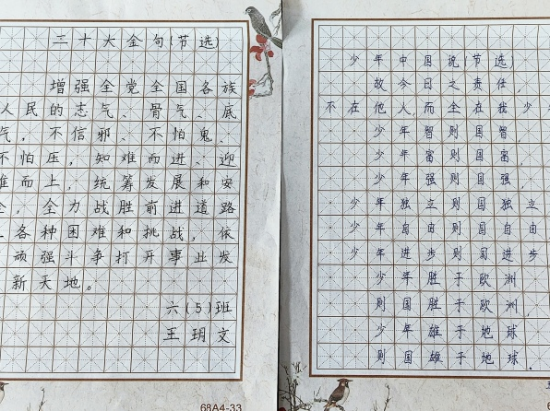 二十大金句(节选)
增强全党全国各族
人民的志气、骨气、底
气，不信邪、不怕鬼、
不怕压，知难而进、迎
难而上，统筹发展和安
全，全力战胜前进道路
上各种困难和挑战，依
顽强斗争打开事业发
新天地。
六(5)班
王玥文
68A4-33
少年中国说(节选)
故今日之责任，
不在他人，而全在我少
少年智则国智，
少年富则国富，
少年强则国强，
少年独立则国独立
少年自由则国自由
少年进步则国进步
少年胜于欧洲
则国胜于欧洲，
少年雄于地球
则国雄于地球．